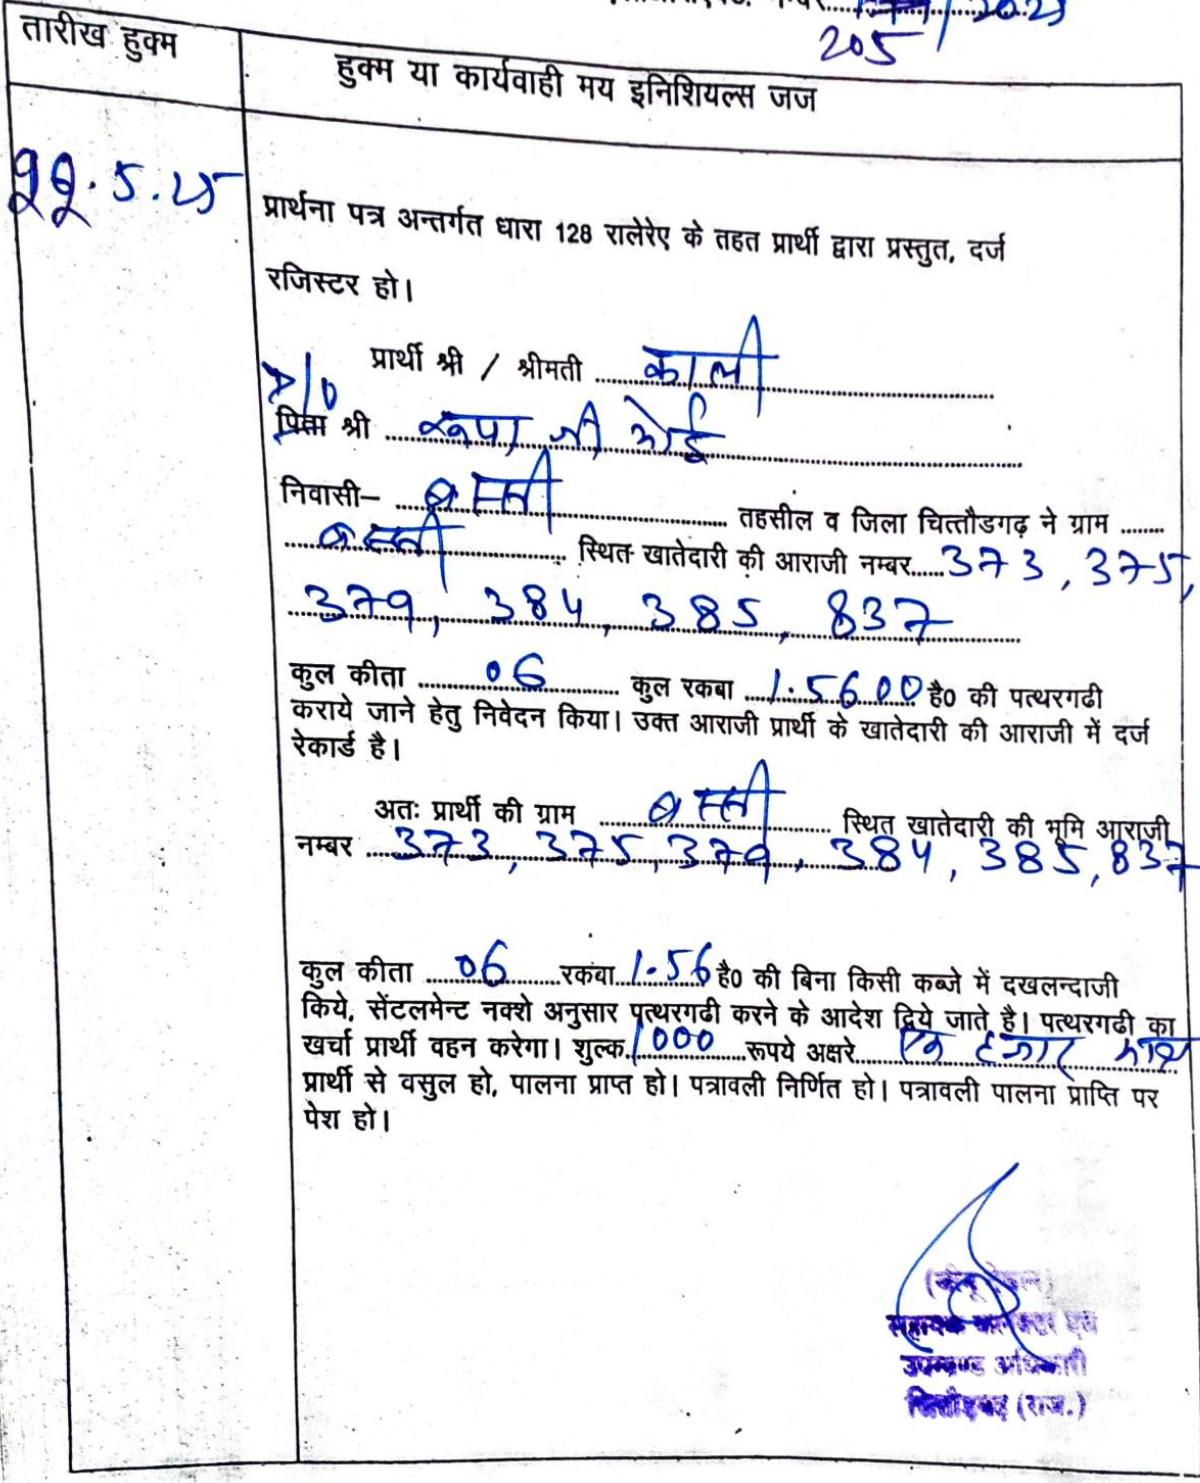 नम्बर ...... / 2025
205
तारीख हुक्म
हुक्म या कार्यवाही मय इनिशियल्स जज
22.5.25
प्रार्थना पत्र अन्तर्गत धारा 128 रालेरेए के तहत प्रार्थी द्वारा प्रस्तुत, दर्ज
रजिस्टर हो।
प्रार्थी श्री / श्रीमती काली
पिता श्री रूपा जी
निवासी– बस्सी तहसील व जिला चित्तौडगढ़ ने ग्राम
बस्सी स्थित खातेदारी की आराजी नम्बर 373, 375,
379, 384, 385, 837
कुल कीता 06 कुल रकबा 1.5600 है0 की पत्थरगढी
कराये जाने हेतु निवेदन किया। उक्त आराजी प्रार्थी के खातेदारी की आराजी में दर्ज
रेकार्ड है।
अतः प्रार्थी की ग्राम बस्सी स्थित खातेदारी की भूमि आराजी
नम्बर 373, 375, 379, 384, 385, 837
कुल कीता 06 रकबा 1.56 है0 की बिना किसी कब्जे में दखलन्दाजी
किये, सेंटलमेन्ट नक्शे अनुसार पत्थरगढी करने के आदेश दिये जाते है। पत्थरगढी का
खर्चा प्रार्थी वहन करेगा। शुल्क 1000 रूपये अक्षरे एक हजार मात्र
प्रार्थी से वसुल हो, पालना प्राप्त हो। पत्रावली निर्णित हो। पत्रावली पालना प्राप्ति पर
पेश हो।
सहायक कलेक्टर एवं
उपखण्ड अधिकारी
चित्तौड़गढ़ (राज.)